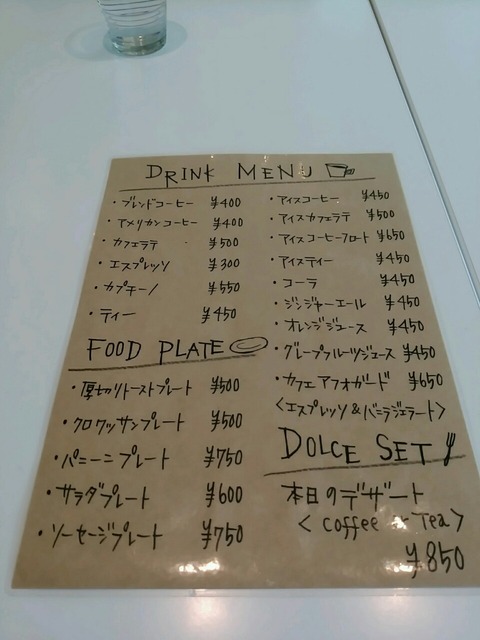 DRINK MENU
・ブレンドコーヒー ¥400
・アメリカンコーヒー ¥400
・カフェラテ ¥500
・エスプレッソ ¥300
・カプチーノ ¥550
・ティー ¥450
・アイスコーヒー ¥450
・アイスカフェラテ ¥500
・アイスコーヒーフロート ¥650
・アイスティー ¥450
・コーラ ¥450
・ジンジャーエール ¥450
・オレンジジュース ¥450
・グレープフルーツジュース ¥450
・カフェアフォガード ¥650
<エスプレッソ&バニラジェラート>
FOOD PLATE
・厚切りトーストプレート ¥500
・クロワッサンプレート ¥500
・パニーニプレート ¥750
・サラダプレート ¥600
・ソーセージプレート ¥750
DOLCE SET
本日のデザート
<coffee or Tea>
¥850